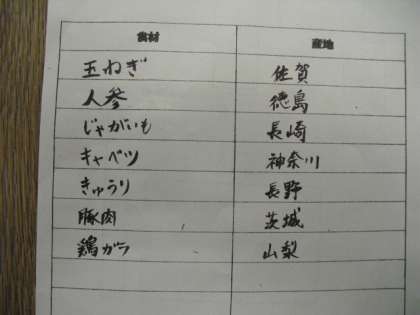 食材 産地
玉ねぎ 佐賀
人参 徳島
じゃがいも 長崎
キャベツ 神奈川
きゅうり 長野
豚肉 茨城
鶏ガラ 山梨